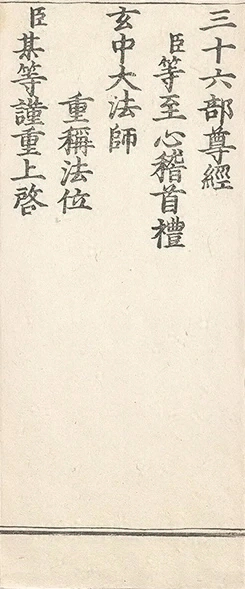 三十六部尊經
臣等至心稽首禮
玄中大法師
重稱法位
臣某等謹重上啓